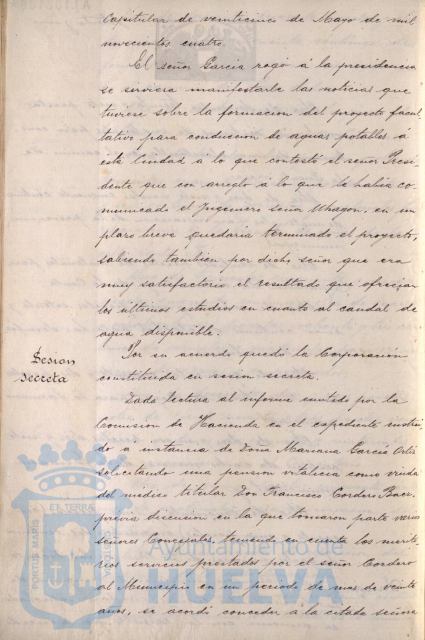 capitular de veinticinco de Mayo de mil
novecientos cuatro.
El señor García rogó á la presidencia
se sirviera manifestarle las noticias que
tuviese sobre la formacion del proyecto facul-
tativo para conduccion de aguas potables á
esta Ciudad á lo que contestó el señor Presi-
dente que con arreglo á lo que le habia co-
municado el Ingeniero señor Uhagon, en un
plazo breve quedaria terminado el proyecto,
sabiendo tambien por dicho señor que era
muy satisfactorio el resultado que ofrecian
los últimos estudios en cuanto al caudal de
agua disponible.
Sesion
secreta
Por su acuerdo quedó la Corporación
constituida en sesion secreta.
Dada lectura al informe emitido por la
Comision de Hacienda en el expediente instrui-
do á instancia de Dona Mariana García Ortiz
solicitando una pension vitalicia como viuda
del médico titular Don Francisco Cordero
previa discusion en la que tomaron parte varios
señores Concejales, teniendo en cuenta los merito-
rios servicios prestados por el señor Cordero
al Municipio en un periodo de mas de veinte
años, se acordó conceder á la citada señora
EL TERRA
PORTUS MARIS
Ayuntamiento de
HUELVA